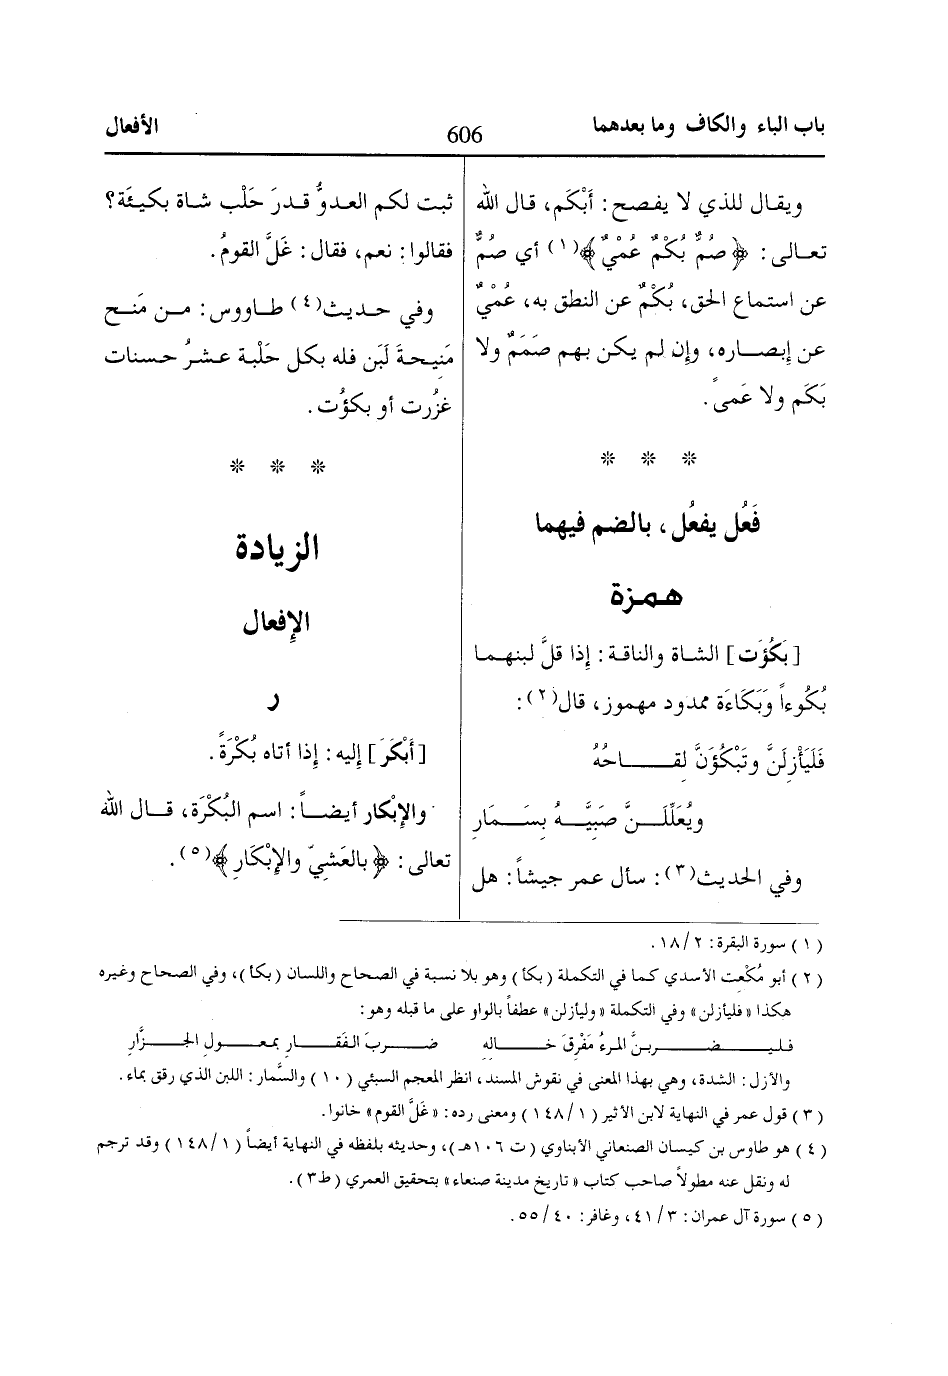 باب الباء والكاف وما بعدهما
606
الأفعال
ويقال للذي لا يفصح: أَبْكَم، قال الله
تعالى: ﴿صُمٌّ بُكْمٌ عُمْيٌ﴾(١) أي صُمٌّ
عن استماع الحق، بُكْمٌ عن النطق به، عُمْيٌ
عن إبصاره، وإن لم يكن بهم صَمَمٌ ولا
بَكَم ولا عَمىً.
* * *
فَعُل يفعُل، بالضم فيهما
همزة
[بَكُؤَت] الشاة والناقة: إذا قلَّ لبنهما
بُكُوءاً وَبَكَاءَة ممدود مهموز، قال(٢):
فَلَيَأْزِلَنَّ وتَبْكُؤَنَّ لقاحُهُ
ويُعَلِّلَنَّ صَبِيَّهُ بِسَمَارِ
وفي الحديث(٣): سأل عمر جيشاً: هل
ثبت لكم العدوُّ قدرَ حَلْب شاة بكيئَة؟
فقالوا: نعم، فقال: غَلَّ القومُ.
وفي حديث(٤) طاووس: من مَنح
مَنِيحةَ لَبَن فله بكل حَلْبة عشرُ حسنات
غزُرت أو بكؤُت.
* * *
الزيادة
الإفعال
ر
[أَبْكَرَ] إليه: إذا أتاه بُكْرَةً.
والإِبْكار أيضاً: اسم البُكْرَة، قال الله
تعالى: ﴿بالعَشيِّ والإِبْكَارِ﴾(٥).
(١) سورة البقرة: ١٨/٢.
(٢) أبو مُكْعِت الأسدي كما في التكملة (بكأ) وهو بلا نسبة في الصحاح واللسان (بكأ)، وفي الصحاح وغيره
هكذا «فليأزلن» وفي التكملة «وليأزلن» عطفاً بالواو على ما قبله وهو:
فليضربنَّ المرءُ مَفْرِقَ خاله ضربَ الفَقَارِ بمعولِ الجزَّارِ
والأزل: الشدة، وهي بهذا المعنى في نقوش المسند، انظر المعجم السبئي (١٠) والسَّمار: اللبن الذي رقق بماء.
(٣) قول عمر في النهاية لابن الأثير (١٤٨/١) ومعنى رده: «غَلَّ القوم» خانوا.
(٤) هو طاوس بن كيسان الصنعاني الأبناوي (ت ١٠٦هـ)، وحديثه بلفظه في النهاية أيضاً (١٤٨/١) وقد ترجم
له ونقل عنه مطولاً صاحب كتاب «تاريخ مدينة صنعاء» بتحقيق العمري (ط٣).
(٥) سورة آل عمران: ٤١/٣، وغافر: ٥٥/٤٠.